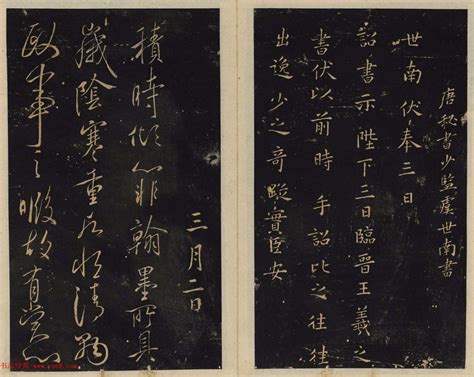 唐秘書少監虞世南書
世南伏奉三日
詔書示陛下三日臨晉王羲之
書伏以前時手詔比之往往
出逸少之奇蹤實臣妄
三月二日
積時傾非翰墨所具
歲陰寒重清
政事之暇故有賞心